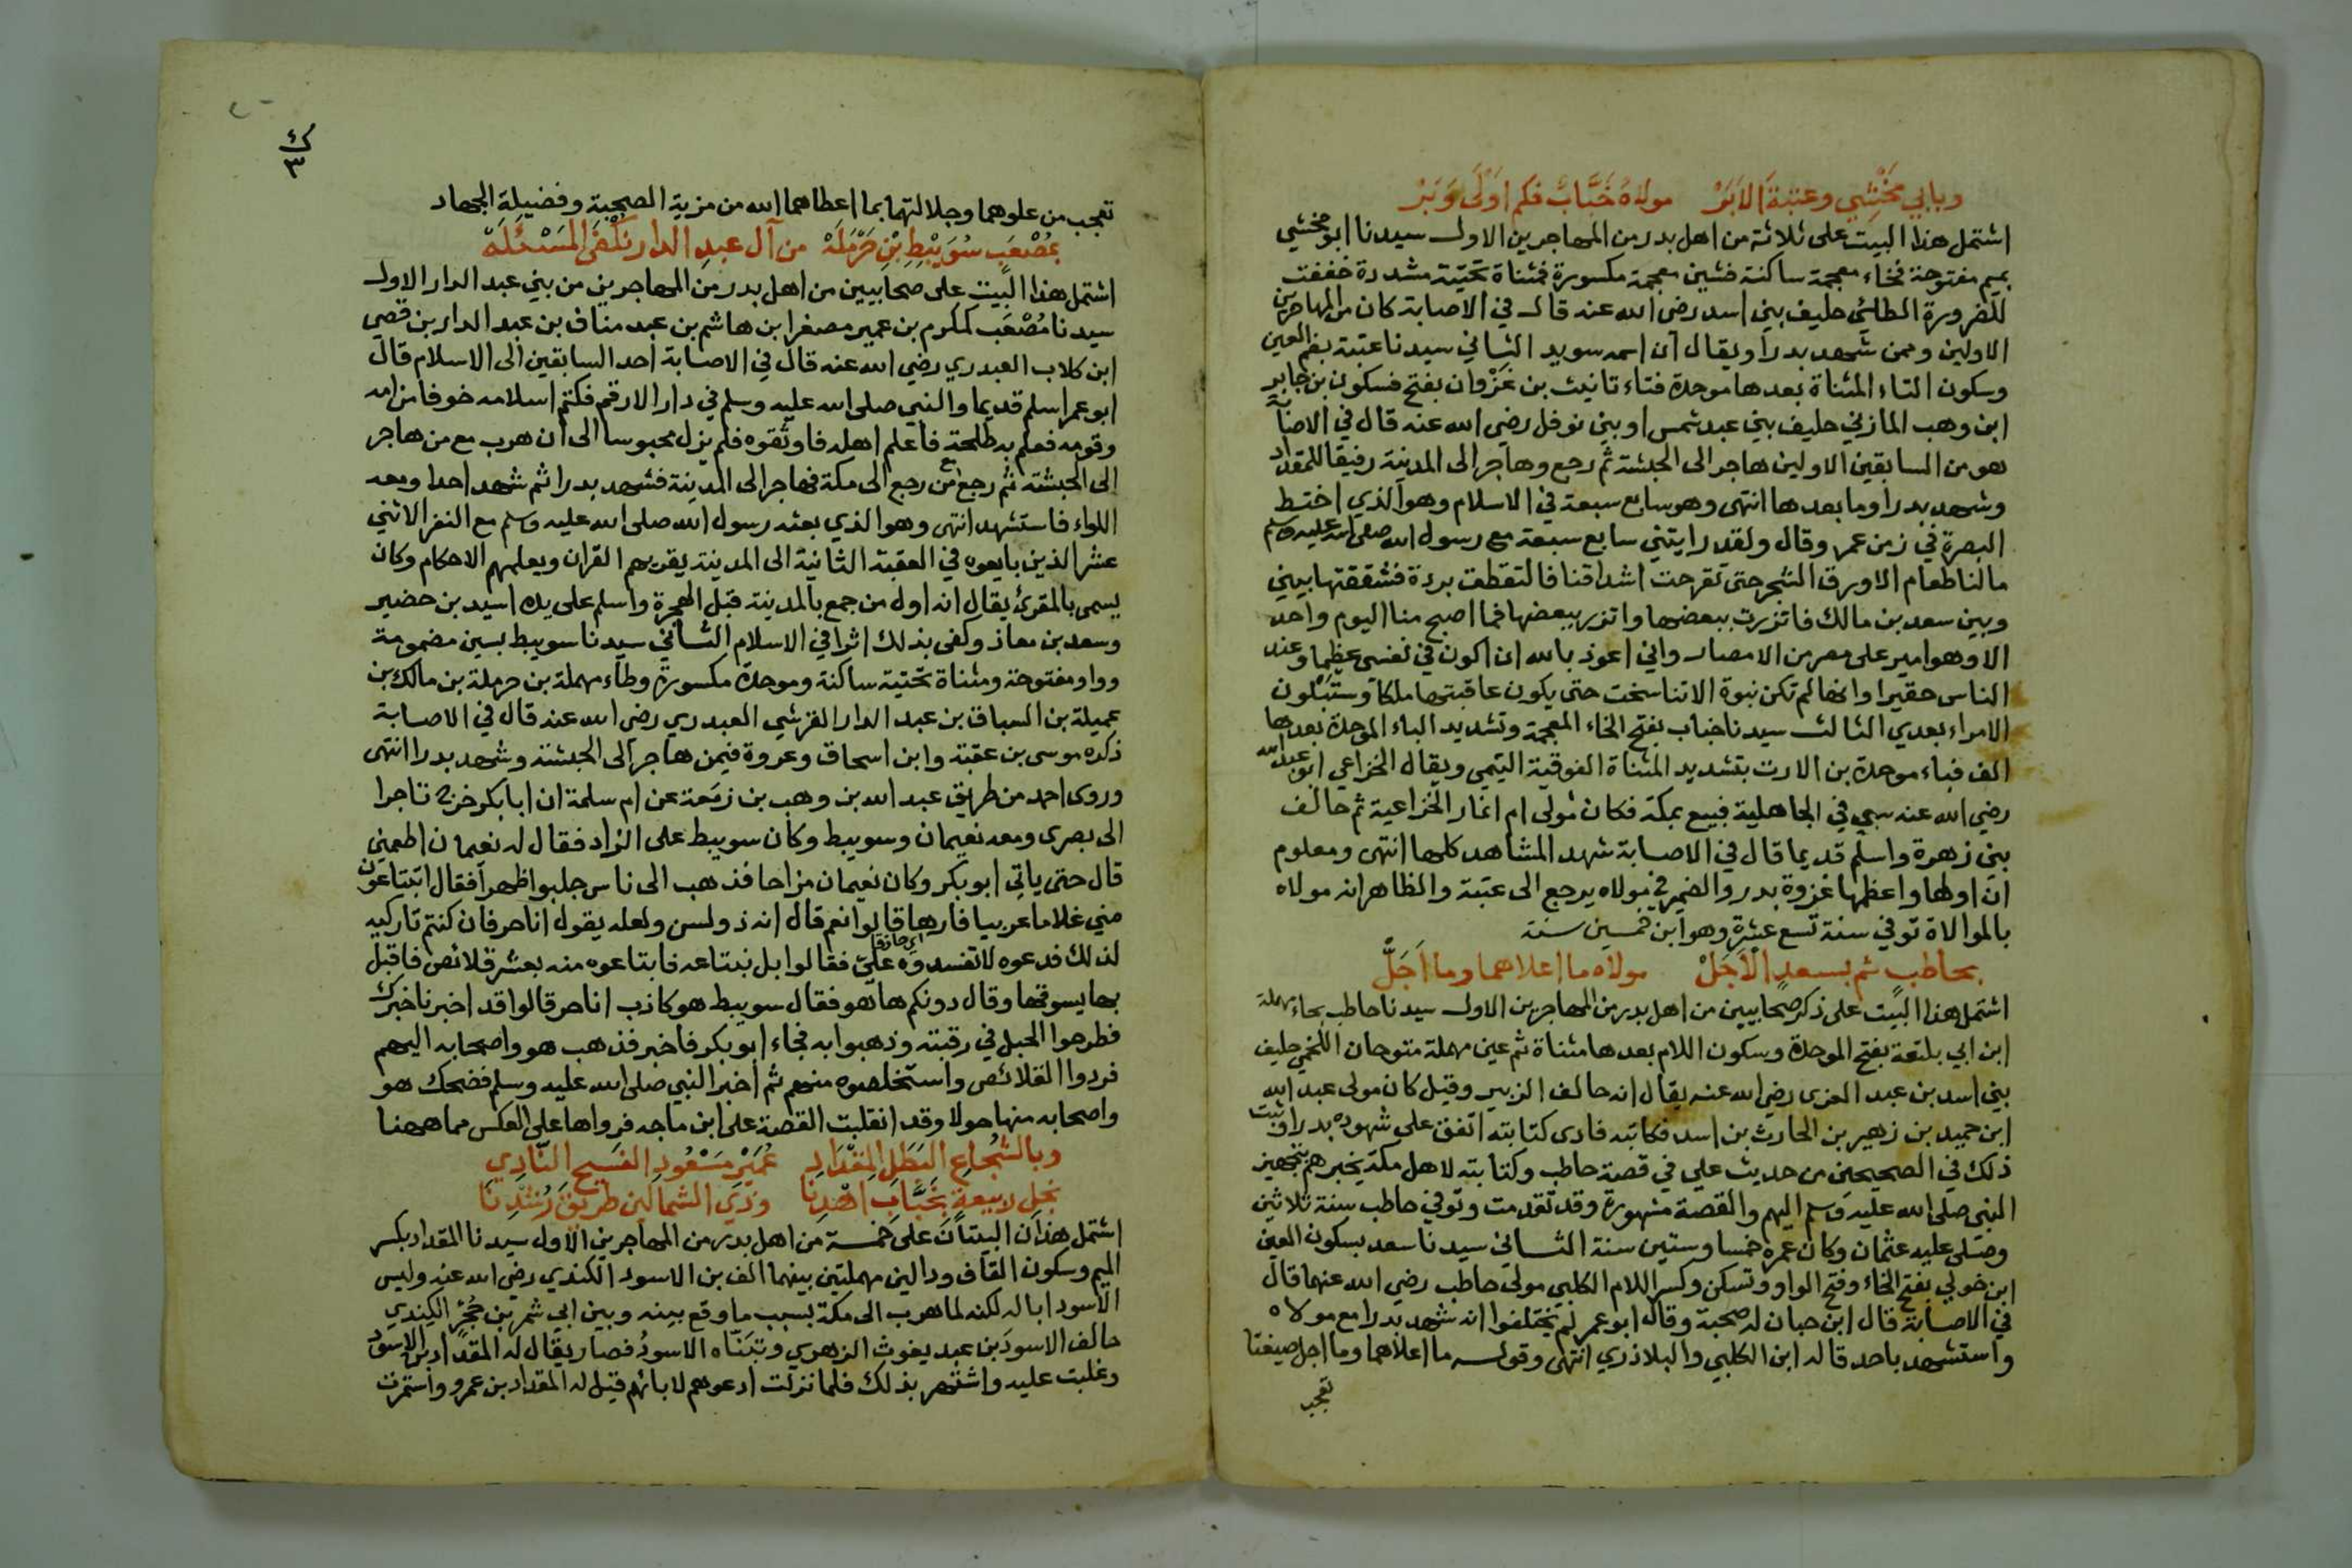 وبابي مخشي وعتبة الابر مولاه خباب فكم اولى وبر
اشتمل هذا البيت على ثلاثة من اهل بدر من المهاجرين الاول سيدنا ابو مخشي
بميم مفتوحة فخاء معجمة ساكنة فشين معجمة مكسورة فمثناة تحتية مشددة خففت
للضرورة الطائي حليف بني اسد رضي الله عنه قال في الاصابة كان من المهاجرين
الاولين وممن شهد بدرا ويقال ان اسمه سويد الثاني سيدنا عتبة بضم العين
وسكون التاء المثناة بعدها موحدة فتاء تانيث بن غَزْوان بفتح فسكون بن جابر
ابن وهب المازني حليف بني عبد شمس او بني نوفل رضي الله عنه قال في الاصابة
هو من السابقين الاولين هاجر الى الحبشة ثم رجع وهاجر الى المدينة رفيقا للمقداد
وشهد بدرا وما بعدها انتهى وهو سابع سبعة في الاسلام وهو الذي اختط
البصرة في زمن عمر وقال ولقد رايتني سابع سبعة مع رسول الله صلى الله عليه وسلم
مالنا طعام الا ورق الشجر حتى تقرحت اشداقنا فالتقطت بردة فشققتها بيني
وبين سعد بن مالك فاتزرت ببعضها واتزر ببعضها فما اصبح منا اليوم واحد
الا وهو امير على مصر من الامصار واني اعوذ بالله ان اكون في نفسي عظيما وعند
الناس حقيرا وانها لم تكن نبوة الا تناسخت حتى يكون عاقبتها ملكا وستبلون
الامراء بعدي الثالث سيدنا خباب بفتح الخاء المعجمة وتشديد الباء الموحدة بعدها
الف فباء موحدة بن الارت بتشديد المثناة الفوقية التيمي ويقال الخزاعي ابو عبد الله
رضي الله عنه سبي في الجاهلية فبيع بمكة فكان مولى ام انمار الخزاعية ثم حالف
بني زهرة واسلم قديما قال في الاصابة شهد المشاهد كلها انتهى ومعلوم
ان اولها واعظمها غزوة بدر والضمير في مولاه يرجع الى عتبة والظاهر انه مولاه
بالموالاة توفي سنة تسع عشرة وهو ابن خمسين سنة
بحاطب ثم بسعد الاجل مولاه ما اعلاهما وما اجلّ
اشتمل هذا البيت على ذكر صحابيين من اهل بدر من المهاجرين الاول سيدنا حاطب بحاء مهملة
ابن ابي بلتعة بفتح الموحدة وسكون اللام بعدها مثناة ثم عين مهملة متوحان اللخمي حليف
بني اسد بن عبد العزى رضي الله عنه يقال انه حالف الزبير وقيل كان مولى عبد الله
ابن حميد بن زهير بن الحارث بن اسد فكاتبه فادى كتابته اتفق على شهوده بدرا وثبت
ذلك في الصحيحين من حديث علي في قصة حاطب وكتابته لاهل مكة يخبرهم بتجهيز
النبي صلى الله عليه وسلم اليهم والقصة مشهورة وقد تقدمت وتوفي حاطب سنة ثلاثين
وصلى عليه عثمان وكان عمره خمسا وستين سنة الثاني سيدنا سعد بسكون العين
ابن خولي بفتح الخاء وفتح الواو وتسكن وكسر اللام الكلبي مولى حاطب رضي الله عنهما قال
في الاصابة قال ابن حبان له صحبة وقال ابو عمر لم يختلفوا انه شهد بدرا مع مولاه
واستشهد باحد قاله ابن الكلبي والبلاذري انتهى وقوله ما اعلاهما وما اجل صيغتا
تعجب
ك
٣
تعجب من علوهما وجلالتهما بما اعطاهما الله من مزية الصحبة وفضيلة الجهاد
بمُصْعَبٍ سُوَيْبِطِ بْنِ حَرْمَلَهْ من آل عبد الدار نكفى المسئله
اشتمل هذا البيت على صحابيين من اهل بدر من المهاجرين من بني عبد الدار الاول
سيدنا مُصْعَب كمكرم بن عمير مصغرا بن هاشم بن عبد مناف بن عبد الدار بن قصي
ابن كلاب العبدري رضي الله عنه قال في الاصابة احد السابقين الى الاسلام قال
ابو عمر اسلم قديما والنبي صلى الله عليه وسلم في دار الارقم فكتم اسلامه خوفا من امه
وقومه فعلم به طلحة فاعلم اهله فاوثقوه فلم يزل محبوسا الى ان هرب مع من هاجر
الى الحبشة ثم رجع مع من رجع الى مكة فهاجر الى المدينة فشهد بدرا ثم شهد احدا ومعه
اللواء فاستشهد انتهى وهو الذي بعثه رسول الله صلى الله عليه وسلم مع النفر الاثني
عشر الذين بايعوه في العقبة الثانية الى المدينة يقريهم القران ويعلمهم الاحكام وكان
يسمى بالمقرئ يقال انه اول من جمع بالمدينة قبل الهجرة واسلم على يده اسيد بن حضير
وسعد بن معاذ وكفى بذلك اثرا في الاسلام الثاني سيدنا سويبط بسين مضمومة
وواو مفتوحة ومثناة تحتية ساكنة وموحدة مكسورة وطاء مهملة بن حرملة بن مالك بن
عميلة بن السباق بن عبد الدار القرشي العبدري رضي الله عنه قال في الاصابة
ذكره موسى بن عقبة وابن اسحاق وعروة فيمن هاجر الى الحبشة وشهد بدرا انتهى
وروى احمد من طريق عبد الله بن وهب بن زمعة عن ام سلمة ان ابا بكر خرج تاجرا
الى بصرى ومعه نعيمان وسويبط وكان سويبط على الزاد فقال له نعيمان اطعمني
قال حتى ياتي ابو بكر وكان نعيمان مزاحا فذهب الى ناس جلبوا ظهرا فقال ابتاعون
مني غلاما عربيا فارها قالوا نعم قال انه ذو لسن ولعله يقول انا حر فان كنتم تاركيه
اي حاذقا
لذلك فدعوه لا تفسدوه عليّ فقالوا بل نبتاعه فابتاعوه منه بعشر قلائص فاقبل
بها يسوقها وقال دونكم ها هو فقال سويبط هو كاذب انا حر قالوا قد اخبرنا خبرك
فطرحوا الحبل في رقبته وذهبوا به فجاء ابو بكر فاخبر فذهب هو واصحابه اليهم
فردوا القلائص واستخلصوه منهم ثم اخبر النبي صلى الله عليه وسلم فضحك هو
واصحابه منها حولا وقد انقلبت القصة على ابن ماجه فرواها على العكس مما ههنا
وبالشُجاعِ البَطَلِ المِقْدَادِ عُمَيْرٍ مَسْعُودِ الفسيح النّادِي
نجل لربيعة بخبّاب اهْدِنا وذي الشمالين طريق رُشْدِنَا
اشتمل هذان البيتان على خمسة من اهل بدر من المهاجرين الاول سيدنا المقداد بكسر
الميم وسكون القاف ودالين مهملتين بينهما الف بن الاسود الكندي رضي الله عنه وليس
الاسود ابا له لكنه لما هرب الى مكة بسبب ما وقع بينه وبين ابي شمر بن حُجْر الكِندي
حالف الاسود بن عبد يغوث الزهري وتبنّاه الاسودُ فصار يقال له المقداد بن الاسود
وغلبت عليه واشتهر بذلك فلما نزلت ادعوهم لابائهم قيل له المقداد بن عمرو واستمرت